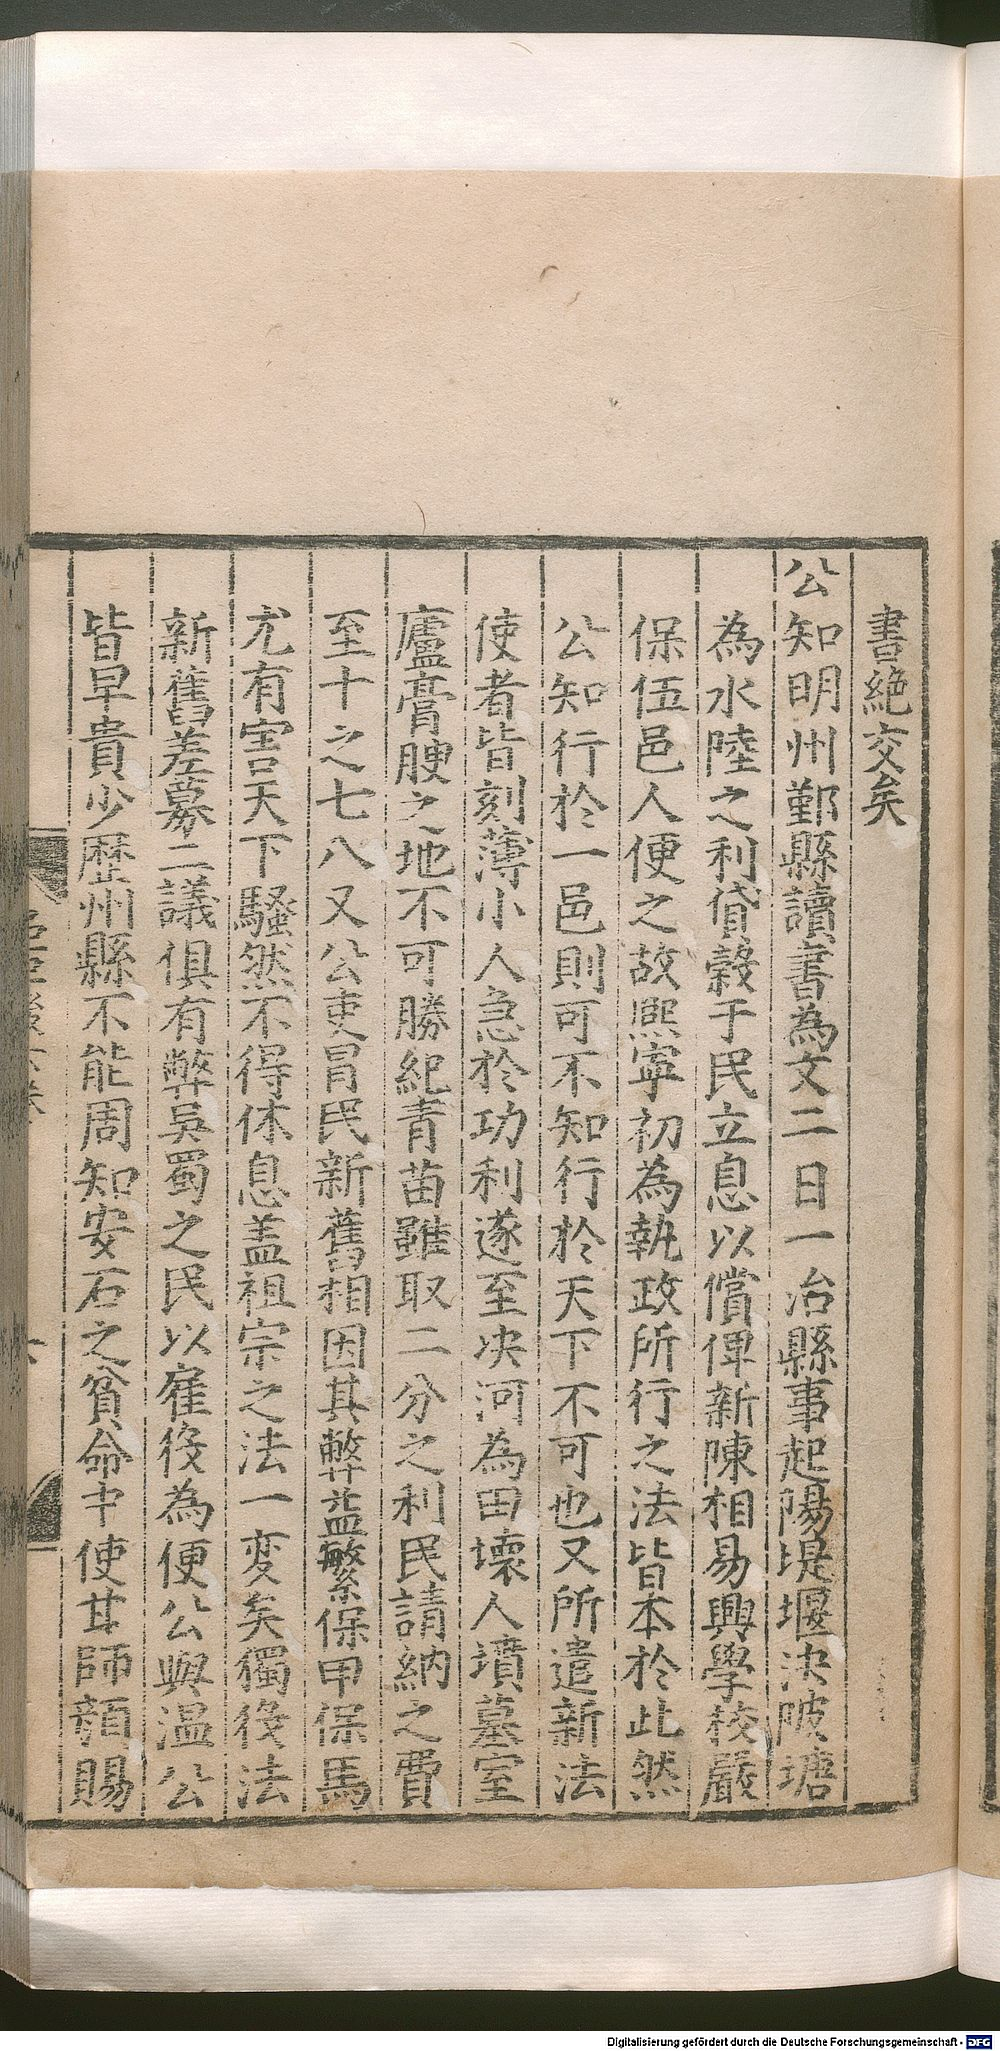 書絶交矣
公知明州鄞縣讀書為文二日一治縣事起陽堤堰决陂塘
為水陸之利貸糓于民立息以償俾新陳相易興學校嚴
保伍邑人便之故熈寜初為執政所行之法皆本於此然
公知行於一邑則可不知行於天下不可也又所遣新法
使者皆刻薄小人急於功利遂至决河為田壞人墳墓室
廬膏腴之地不可勝紀青苗雖取二分之利民請納之費
至十之七八又公吏冒民新舊相因其弊益繁保甲保馬
尤有害天下騷然不得休息盖祖宗之法一変矣獨役法
新舊差募二議俱有弊吳蜀之民以雇役為便公與温公
皆早貴少歷州縣不能周知安石之貧命中使甘師顔賜
Digitalisierung gefördert durch die Deutsche Forschungsgemeinschaft - DFG